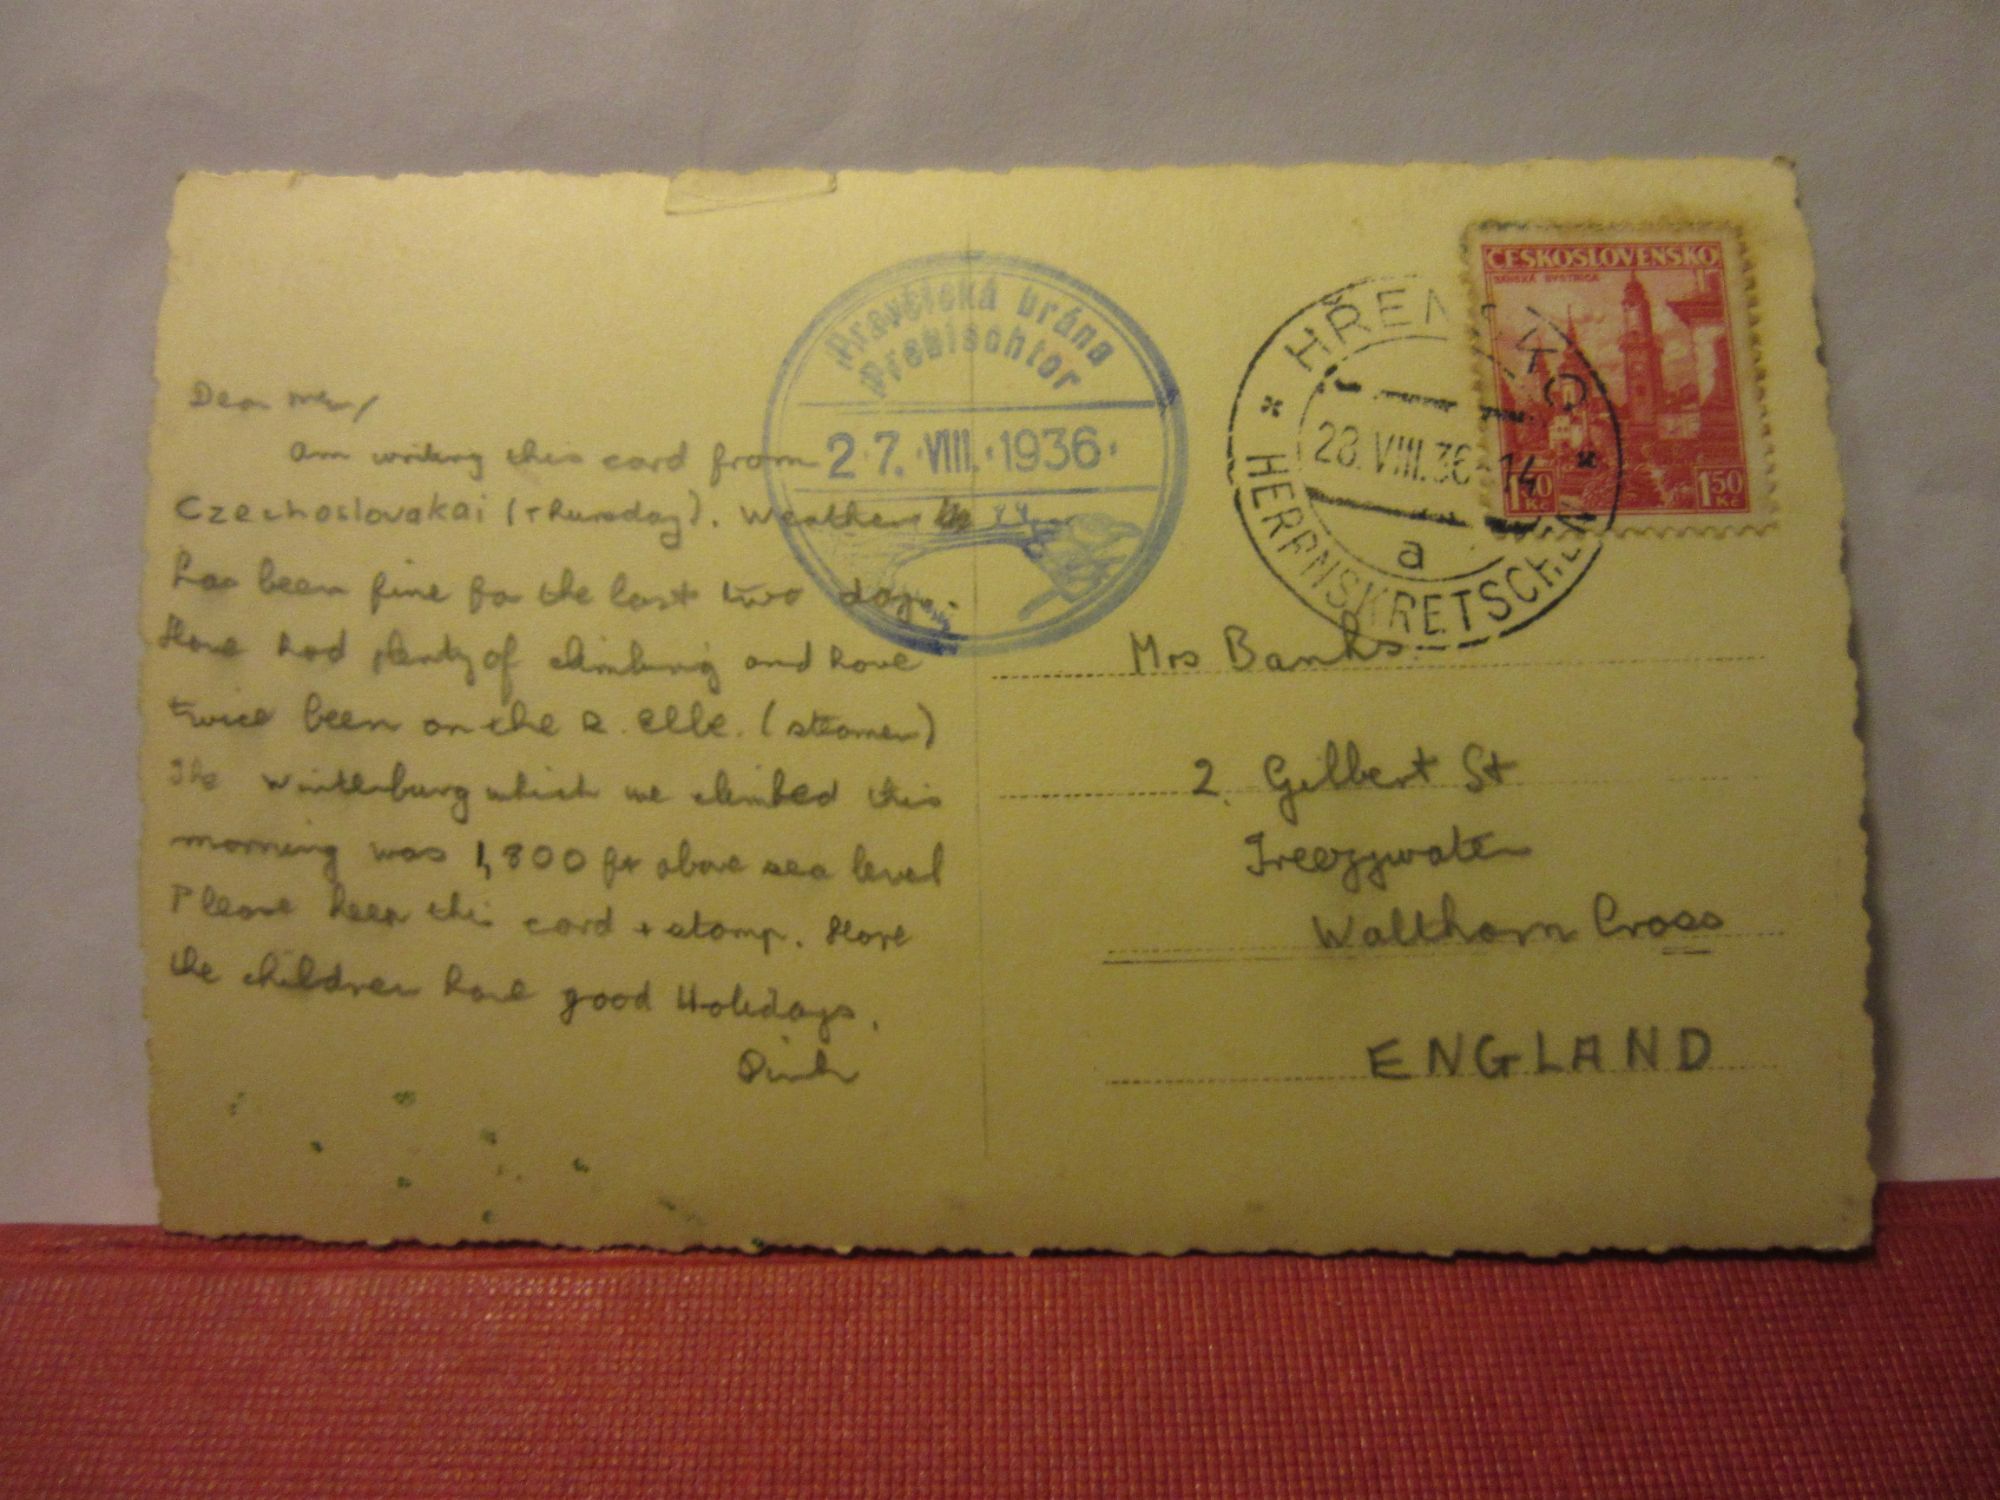 Dear
am writing this card from
Czechoslovakai (Thursday). Weather
has been fine for the last two days.
Have had plenty of climbing and have
twice been on the R. Elbe. (steamer)
The Winterburg which we climbed this
morning was 1,800 ft above sea level
Please keep this card + stamp. Hope
the children have good Holidays.
Pravčická brána
Prebischtor
27. VIII. 1936
HŘENSKO
28. VIII. 36 - 14
a
HERRNSKRETSCHEN
ČESKOSLOVENSKO
BANSKÁ BYSTRICA
1.50 Kč 1.50 Kč
Mrs Banks.
2. Gilbert St
Freezywater
Waltham Cross
ENGLAND